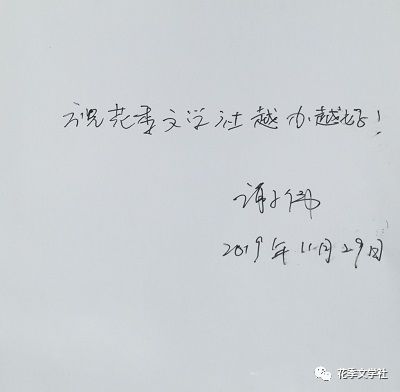 祝花季文学社越办越好!
谢伟
2019年11月29日
花季文学社